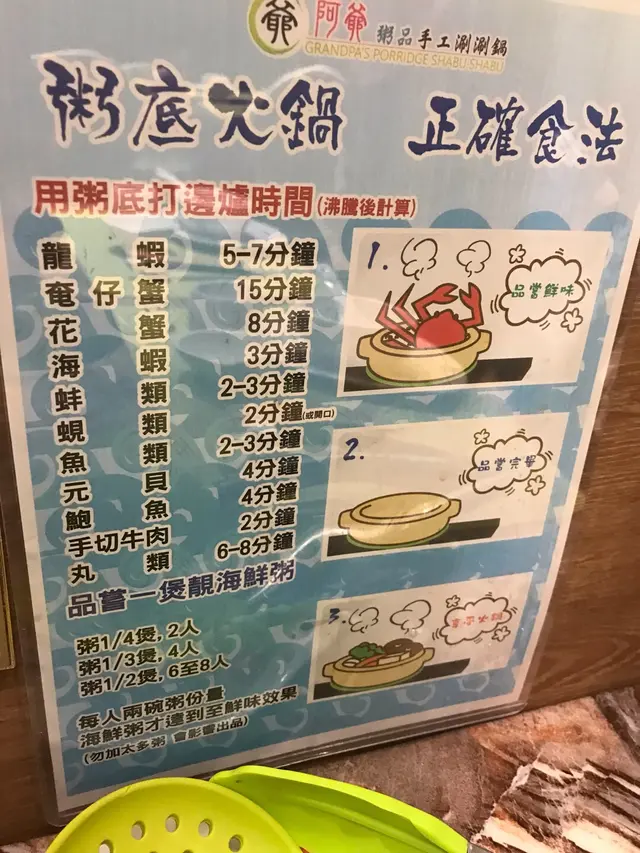 爺 阿爺 粥品手工涮涮鍋
GRANDPA'S PORRIDGE SHABU SHABU
粥底火鍋 正確食法
用粥底打邊爐時間(沸騰後計算)
龍蝦 5-7分鐘
奄仔蟹 15分鐘
花蟹 8分鐘
海蝦 3分鐘
蚌類 2-3分鐘
蜆類 2分鐘(或開口)
魚類 2-3分鐘
元貝 4分鐘
鮑魚 4分鐘
手切牛肉 2分鐘
丸類 6-8分鐘
品嘗一煲靚海鮮粥
粥1/4煲, 2人
粥1/3煲, 4人
粥1/2煲, 6至8人
每人兩碗粥份量
海鮮粥才達到至鮮味效果
(勿加太多粥 會影響出品)
1.
品嘗鮮味
2.
品嘗完畢
3.
火鍋